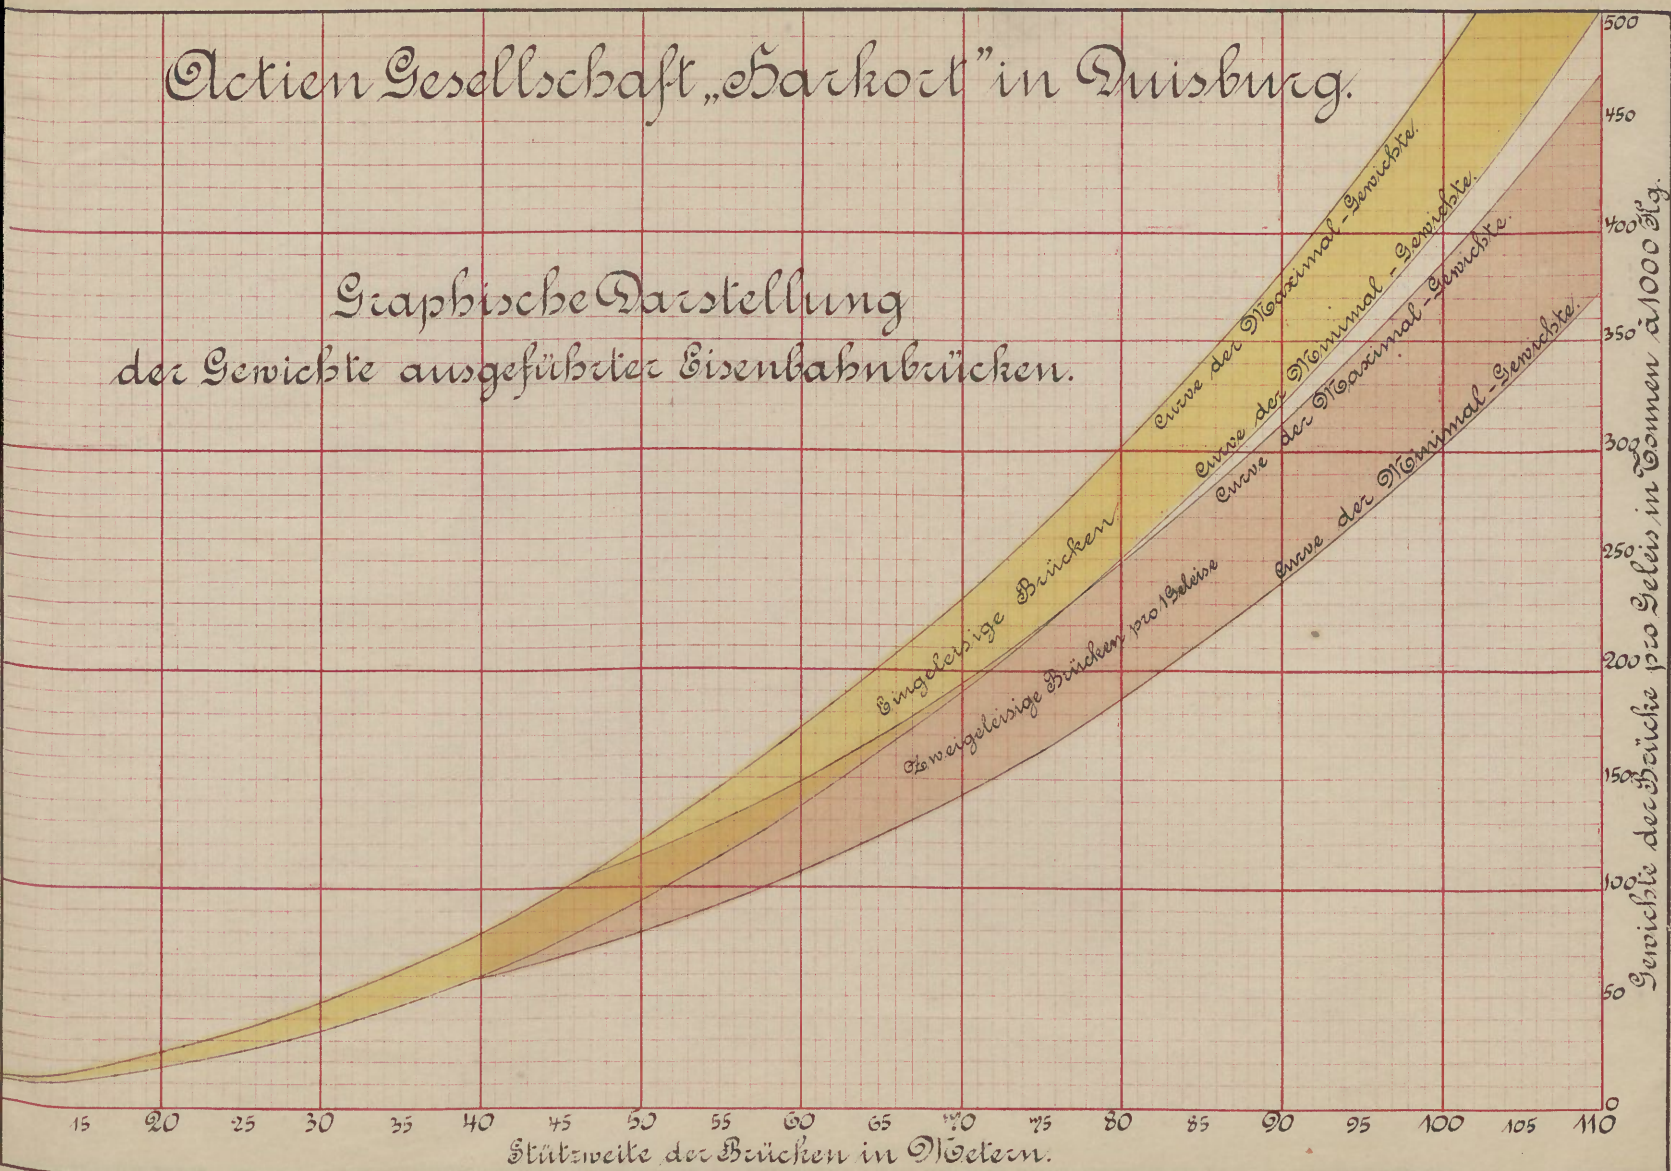 Actien Gesellschaft „Harkort” in Duisburg.
Graphische Darstellung
der Gewichte ausgeführter Eisenbahnbrücken.
Curve der Maximal-Gewichte.
Curve der Minimal-Gewichte.
Curve der Maximal-Gewichte.
Curve der Minimal-Gewichte.
Eingeleisige Brücken
Zweigeleisige Brücken pro 1 Geleise
500
450
400
350
300
250
200
150
100
50
0
Gewichte der Brücke pro Geleis in Tonnen à 1000 Kg.
15 20 25 30 35 40 45 50 55 60 65 70 75 80 85 90 95 100 105 110
Stützweite der Brücken in Metern.